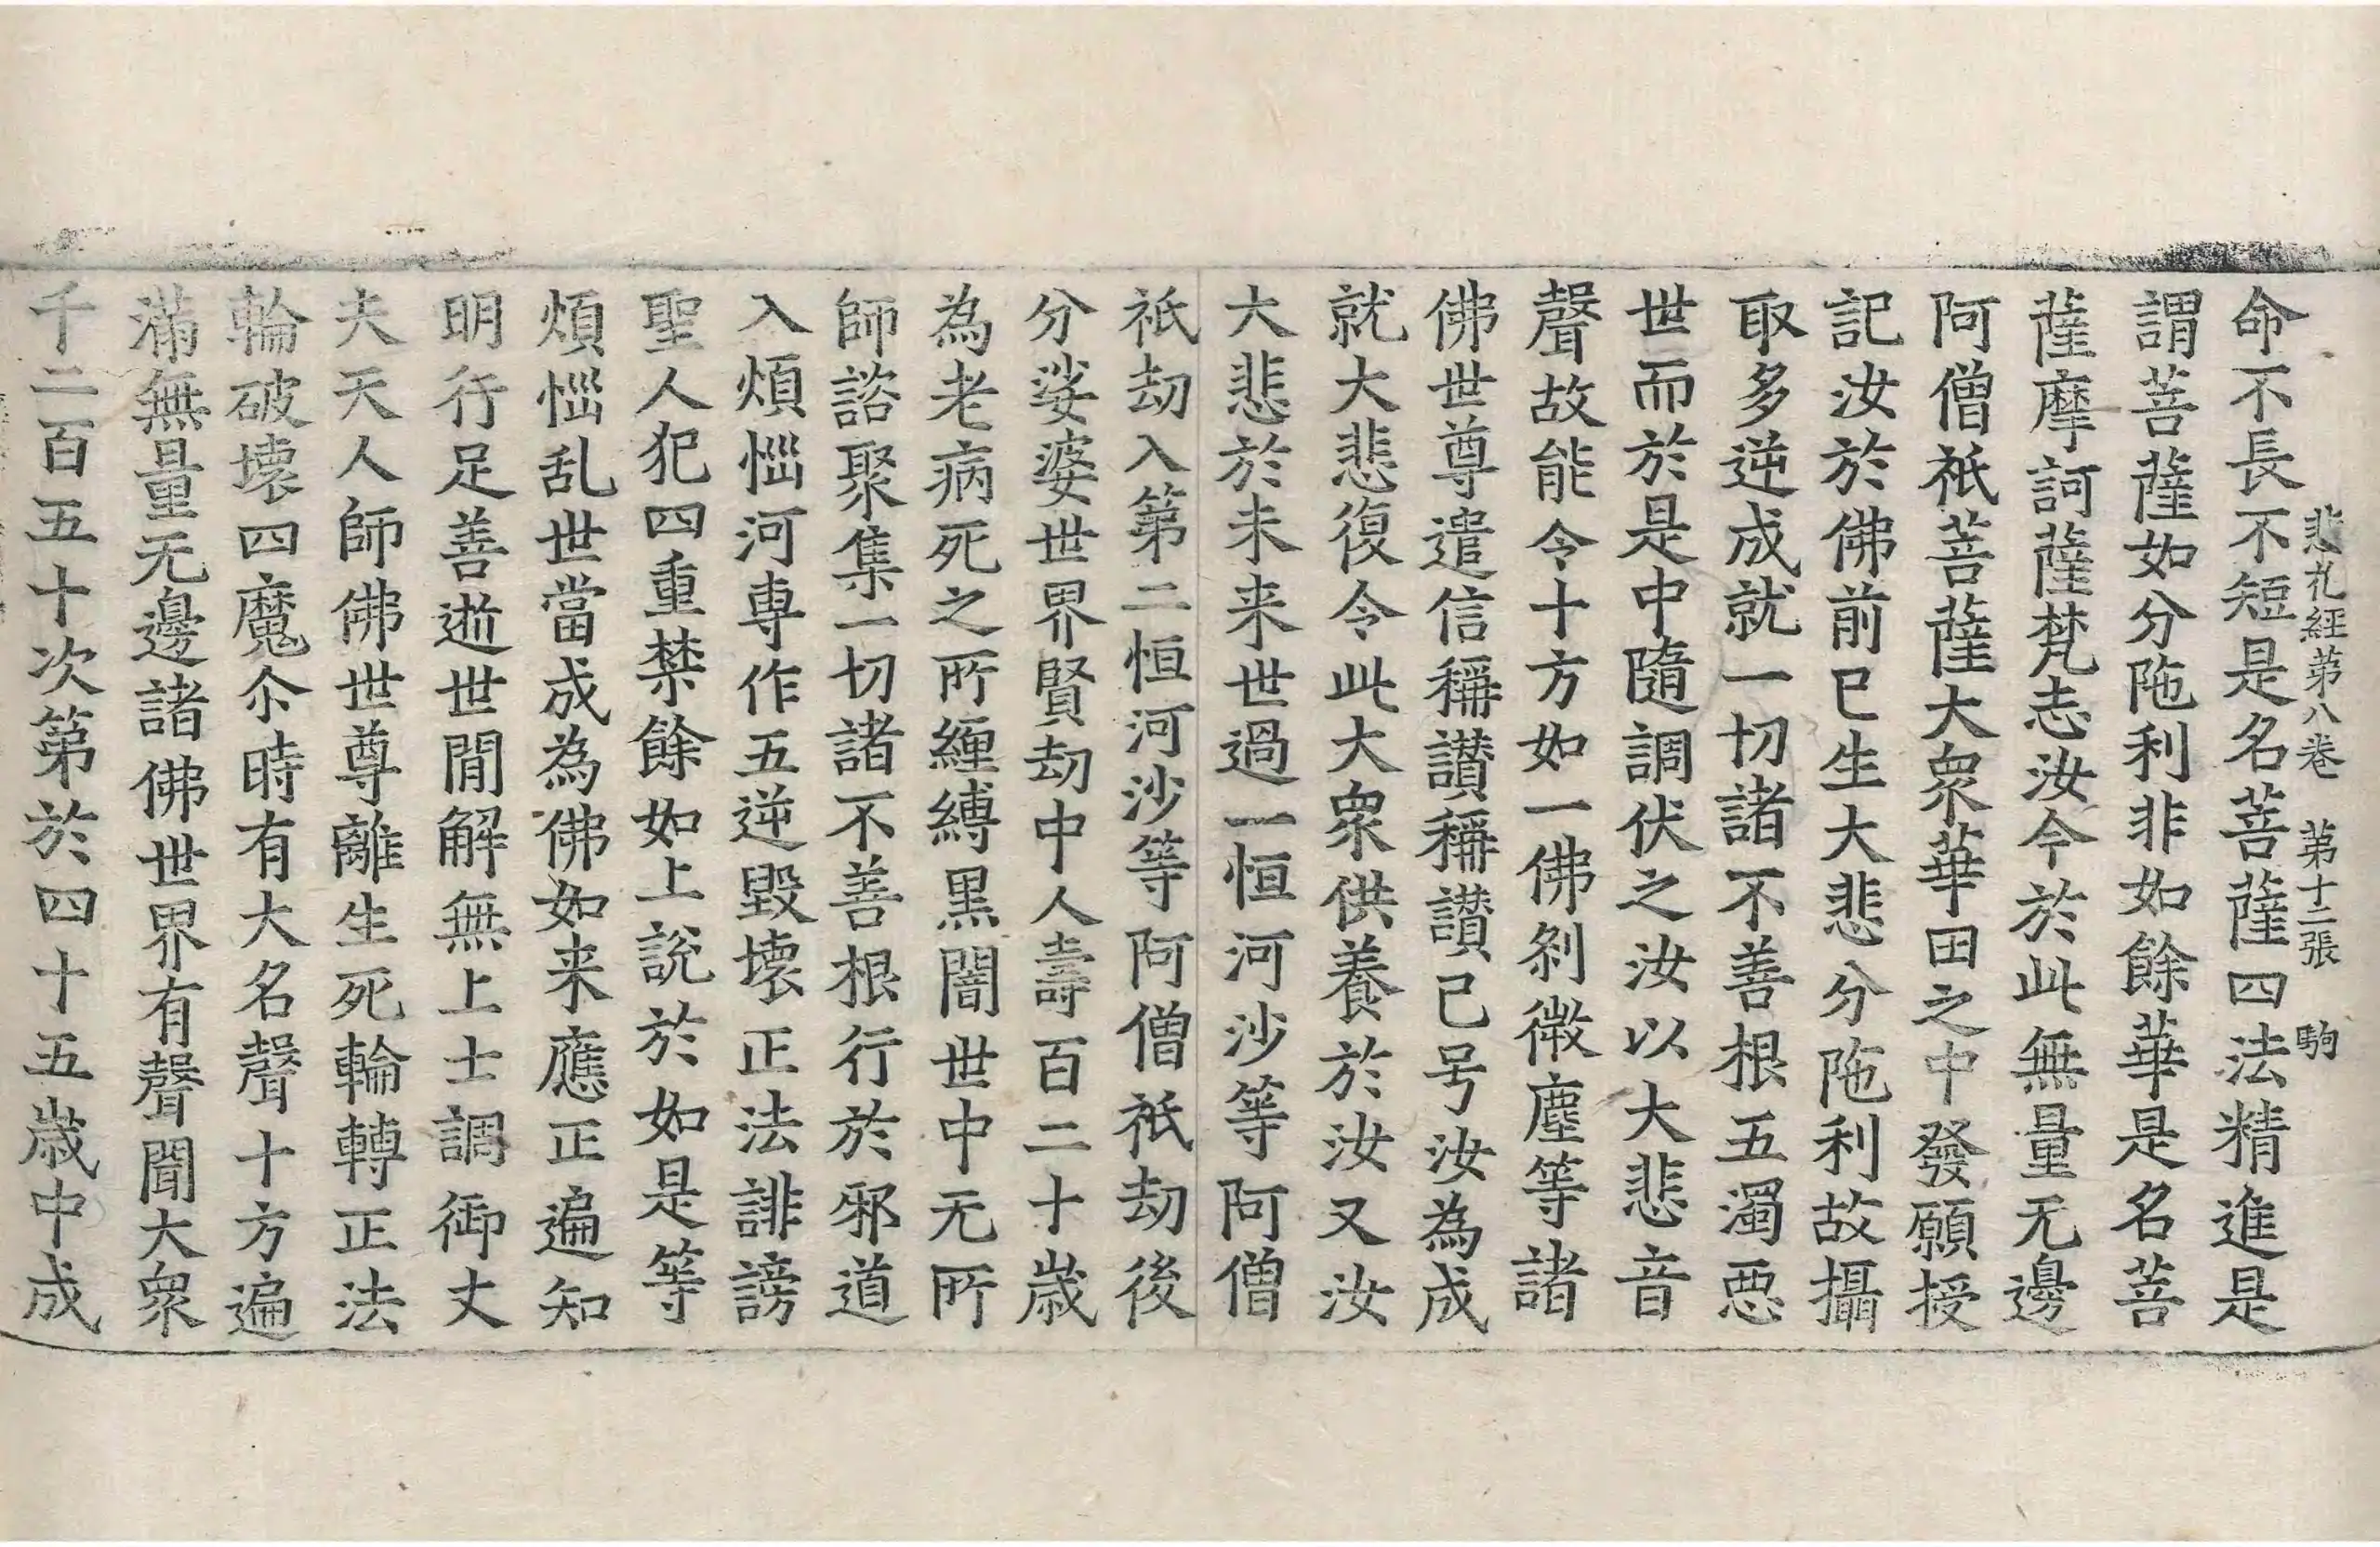 悲礼經第八卷 第十二張 駒
命不長不短是名菩薩四法精進是
謂菩薩如分陁利非如餘華是名菩
薩摩訶薩梵志汝今於此無量无邊
阿僧祇菩薩大衆華田之中發願授
記汝於佛前已生大悲分陁利故攝
取多逆成就一切諸不善根五濁惡
世而於是中隨調伏之汝以大悲音
聲故能令十方如一佛刹微塵等諸
佛世尊遣信稱讃稱讃已号汝為成
就大悲復令此大衆供養於汝又汝
大悲於未来世過一恒河沙等阿僧
祇劫入第二恒河沙等阿僧祇劫後
分娑婆世界賢劫中人壽百二十歳
為老病死之所纏縛黒闇世中无所
師諮聚集一切諸不善根行於邪道
入煩惱河専作五逆毀壊正法誹謗
聖人犯四重禁餘如上説於如是等
煩惱乱世當成為佛如来應正遍知
明行足善逝世間解無上士調御丈
夫天人師佛世尊離生死輪轉正法
輪破壊四魔尒時有大名聲十方遍
滿無量无邊諸佛世界有聲聞大衆
千二百五十次第於四十五歳中成